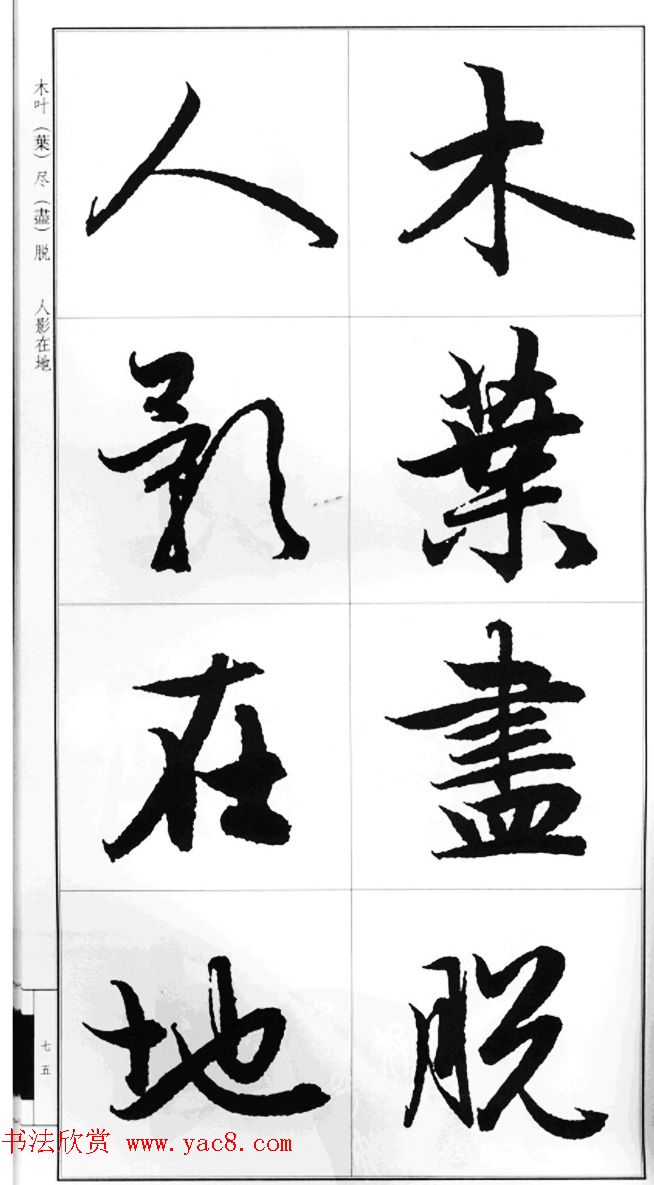 木葉盡脱
人影在地
木叶（葉）尽（盡）脱　人影在地
七五
书法欣赏 www.yac8.com